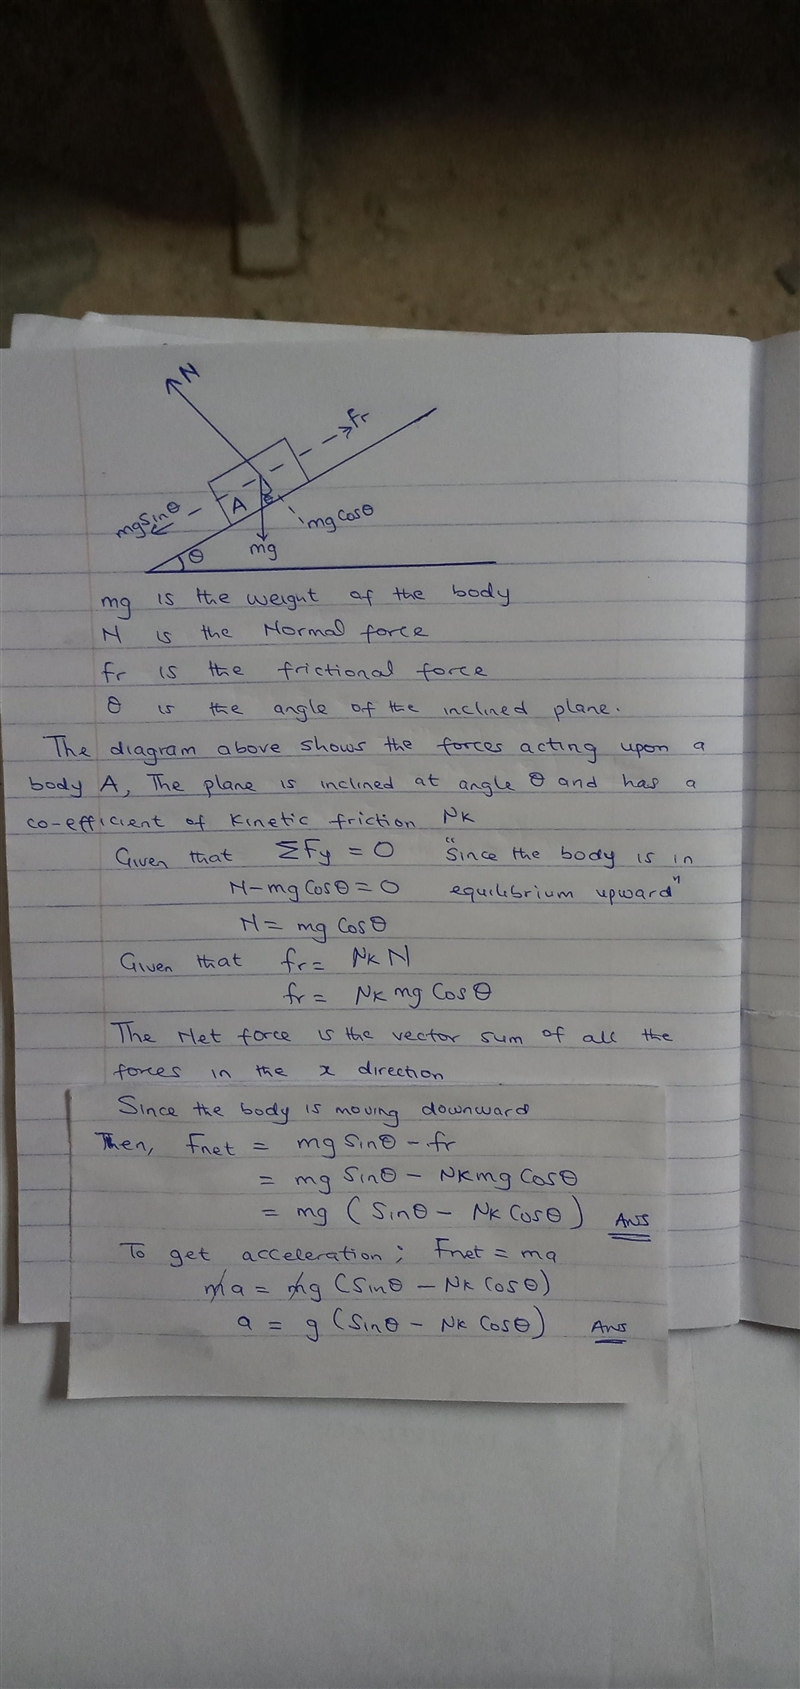 N
fr
mgSinθ
A
θ
mgCosθ
θ
mg
mg is the weight of the body
N is the Normal force
fr is the frictional force
θ is the angle of the inclined plane.
The diagram above shows the forces acting upon a
body A, The plane is inclined at angle θ and has a
co-efficient of Kinetic friction μk
Given that ΣFy = 0 "Since the body is in
N-mgCosθ=0 equilibrium upward"
N = mg Cosθ
Given that fr = μk N
fr = μk mg Cosθ
The Net force is the vector sum of all the
forces in the x direction
Since the body is moving downward
Then, Fnet = mg Sinθ - fr
= mg Sinθ - μk mg Cosθ
= mg (Sinθ - μk Cosθ) Ans
To get acceleration; Fnet = ma
ma = mg (Sinθ - μk Cosθ)
a = g (Sinθ - μk Cosθ) Ans